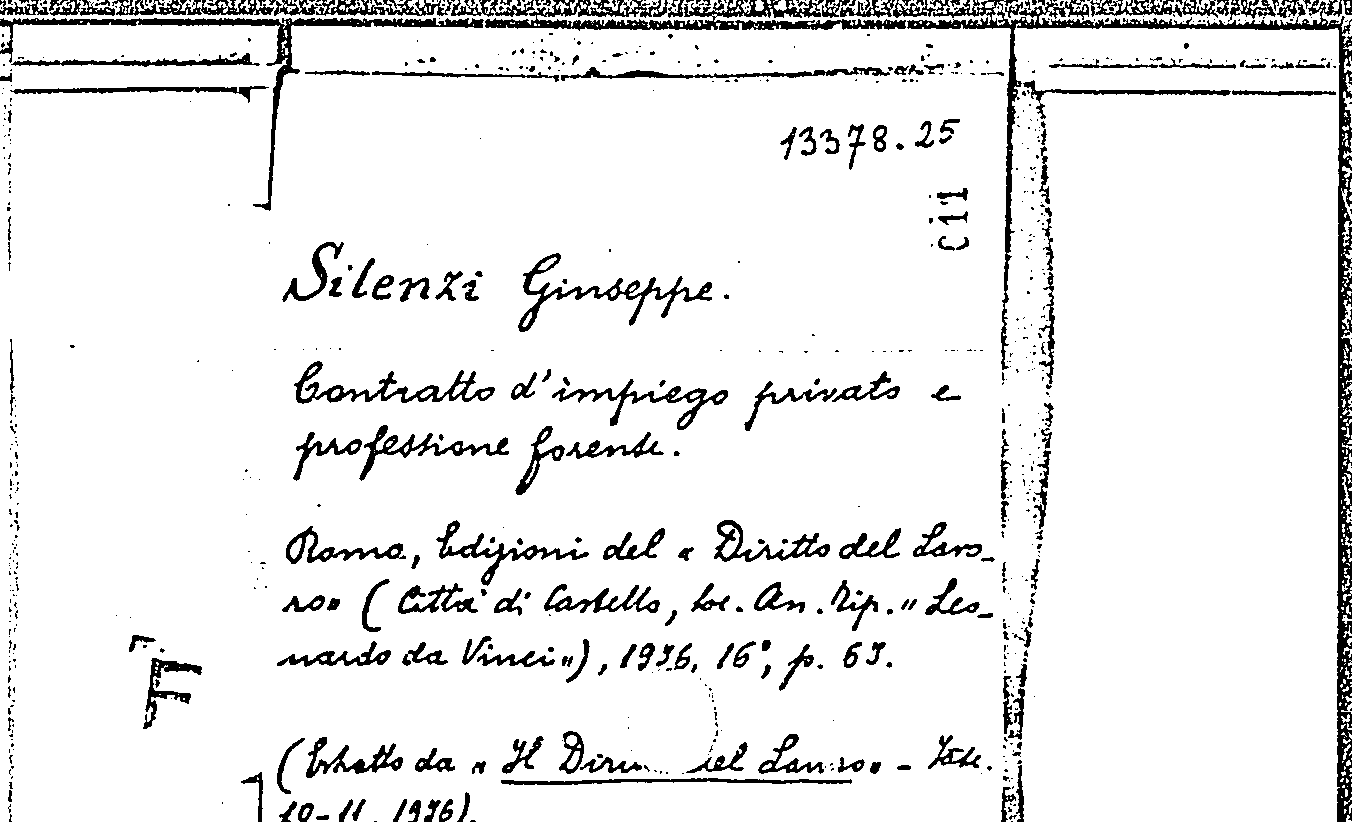 13378.25
C11
Silenzi Giuseppe.
Contratto d'impiego privato e
professione forense.
Roma, Edizioni del « Diritto del Lavo-
ro» ( Città di Castello, Soc. An. Tip. " Leo-
nardo da Vinci"), 1936, 16°, p. 63.
F
(Estratto da « Il Diritto del Lavoro» - Fasc.
10-11, 1936).